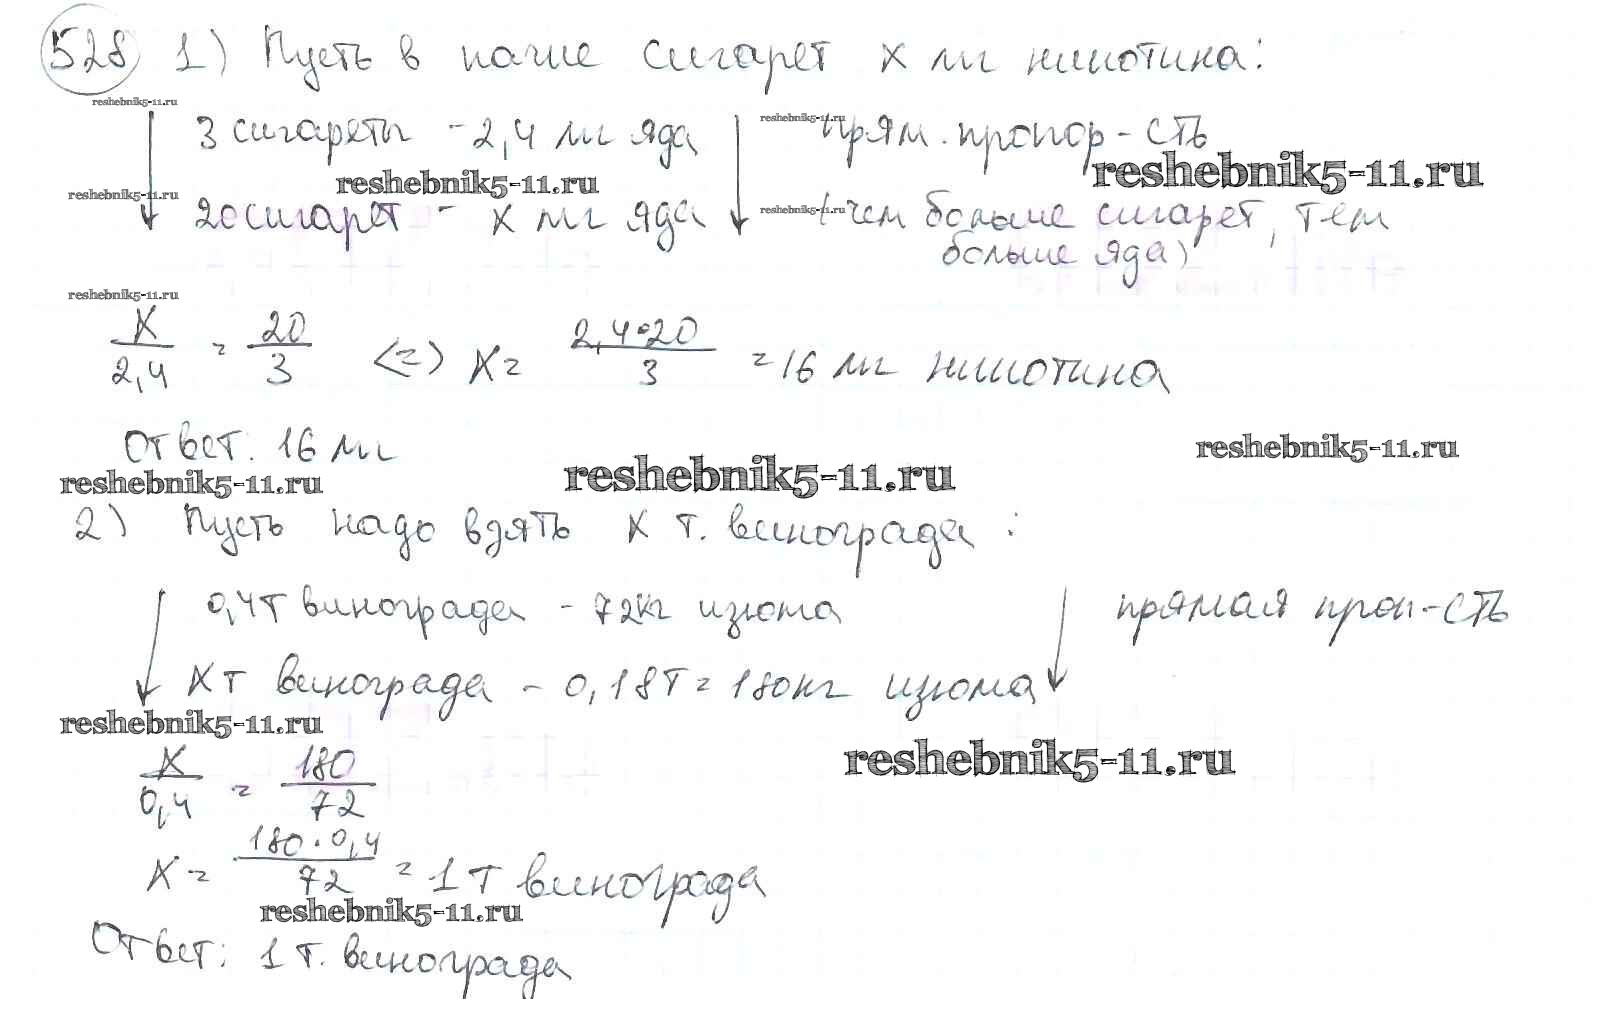 528 1) Пусть в пачке сигарет x мг никотина:
reshebnik5-11.ru
3 сигареты - 2,4 мг яда
reshebnik5-11.ru
прям. пропор-сть
reshebnik5-11.ru
reshebnik5-11.ru
reshebnik5-11.ru
20 сигарет - x мг яда
reshebnik5-11.ru
(чем больше сигарет, тем
больше яда)
reshebnik5-11.ru
x/2,4 = 20/3 <=> x = 2,4•20/3 = 16 мг никотина
Ответ: 16 мг
reshebnik5-11.ru
reshebnik5-11.ru
reshebnik5-11.ru
2) Пусть надо взять x т. винограда:
0,4т винограда - 72кг изюма прямая проп-сть
x т винограда - 0,18т = 180кг изюма
reshebnik5-11.ru
reshebnik5-11.ru
x/0,4 = 180/72
x = 180·0,4/72 = 1 т винограда
reshebnik5-11.ru
Ответ: 1 т. винограда